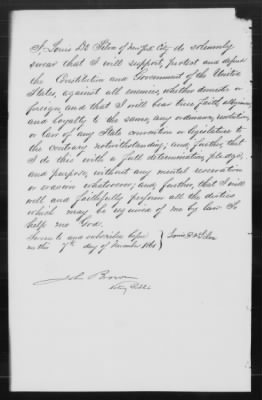 I, Louis De Silva of New York City do solemnly
swear that I will support, protect and defend
the Constitution and Government of the United
States, against all enemies, whether domestic or
foreign, and that I will bear true faith, allegiance,
and loyalty to the same, any ordinance, resolution,
or law of any State convention or legislature to
the contrary notwithstanding; and further, that
I do this with a full determination, pledge,
and purpose, without any mental reservation
or evasion whatsoever; and, further, that I will
well and faithfully perform all the duties
which may be required of me by law. So
help me God.
Sworn to and subscribed before
me this 7th day of December
Louis De Silva
John Brown
Notary Public